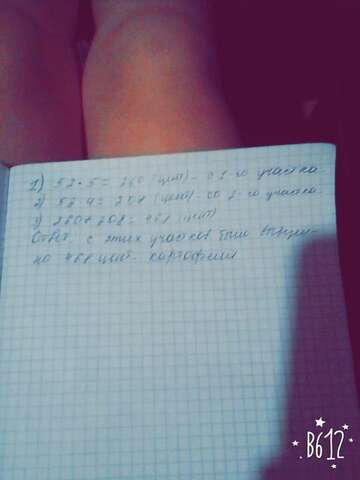 1) 52 • 5 = 260 (цнт) - с 1-го участка
2) 52 • 4 = 208 (цент) - со 2-го участка
3) 260 + 208 = 468 (цнт)
Ответ с этих участков было
но 468 цнт. картофеля
B612